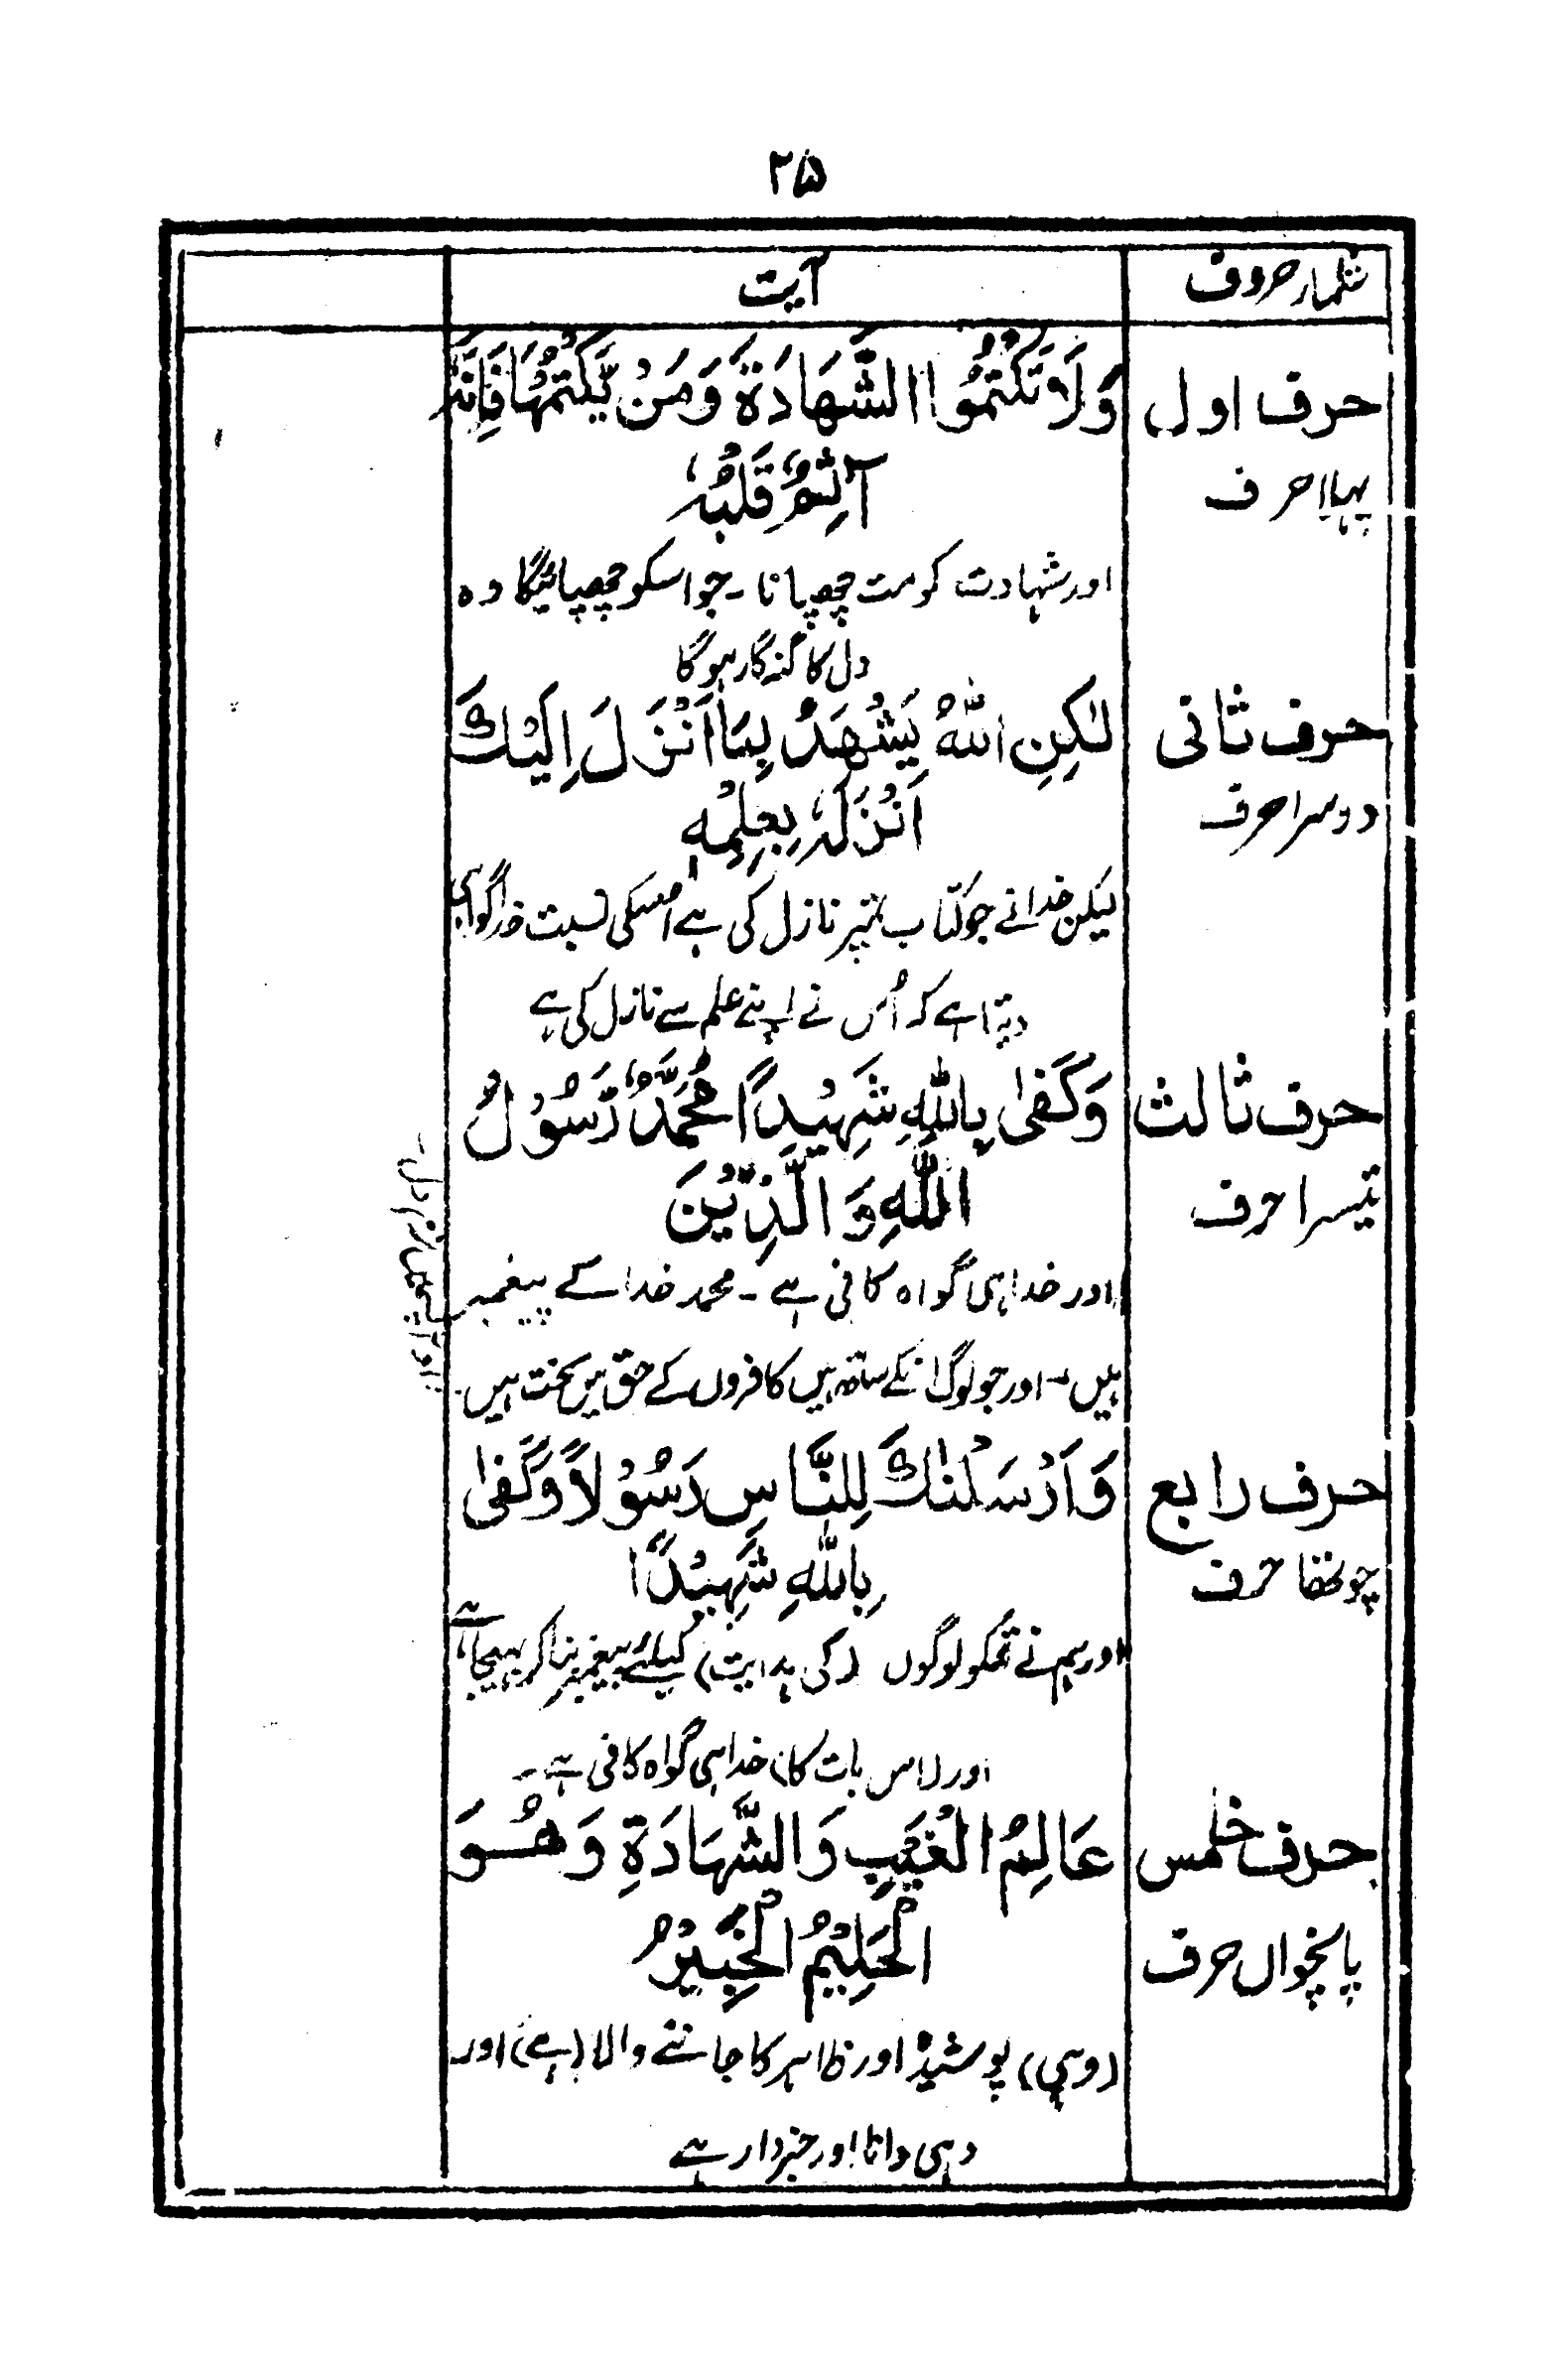 ۲۵
شمار حروف
آیت
حرف اول
وَلَا تَكْتُمُوا الشَّهَادَةَ وَمَنْ يَّكْتُمْهَا فَاِنَّهٗ
پہلا حرف
آثِمٌ قَلْبُهٗ
اور شہادت کو مت چھپانا ۔ جو اسکو چھپائیگا وہ
دل کا گنہگار ہوگا
حرف ثانی
لٰكِنِ اللّٰهُ يَشْهَدُ بِمَا اَنْزَلَ اِلَيْكَ
دوسرا حرف
اَنْزَلَهٗ بِعِلْمِهٖ
لیکن خدا نے جو کتاب تمپر نازل کی ہے اسکی نسبت خدا گواہی
دیتا ہے کہ اُس نے اپنے علم سے نازل کی ہے
حرف ثالث
وَكَفٰى بِاللّٰهِ شَهِيْدًا مُحَمَّدٌ رَّسُوْلُ
تیسرا حرف
اللّٰهِ وَالَّذِيْنَ
اور خدا ہی گواہ کافی ہے ۔ محمد خدا کے پیغمبر
ہیں ۔ اور جو لوگ انکے ساتھ ہیں کافروں کے حق میں سخت ہیں
حرف رابع
وَاَرْسَلْنٰكَ لِلنَّاسِ رَسُوْلًا وَّكَفٰى
چوتھا حرف
بِاللّٰهِ شَهِيْدًا
اور ہم نے تمکو لوگوں (کی ہدایت) کیلئے پیغمبر بنا کر بھیجا ہے
اور (اس بات کا) خدا ہی گواہ کافی ہے ۔
حرف خامس
عَالِمُ الْغَيْبِ وَالشَّهَادَةِ وَهُوَ
پانچواں حرف
الْحَلِيْمُ الْخَبِيْرُ
(وہی) پوشیدہ اور ظاہر کا جاننے والا (ہے) اور
وہی دانا اور خبردار ہے